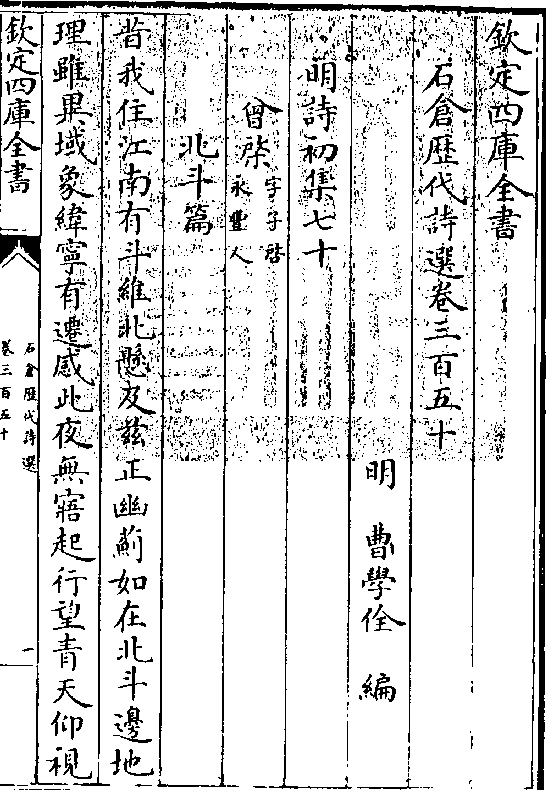 欽定四庫全書
石倉歴代詩選卷三百五十
明 曹學佺 編
明詩初集七十
曾棨字子啓
永豐人
北斗篇
昔我住江南有斗維北懸及兹正幽薊如在北斗邊地
理雖異域象緯寧有遷感此夜無寤起行望青天仰視
欽定四庫全書
石倉歷代詩選
卷三百五十
一